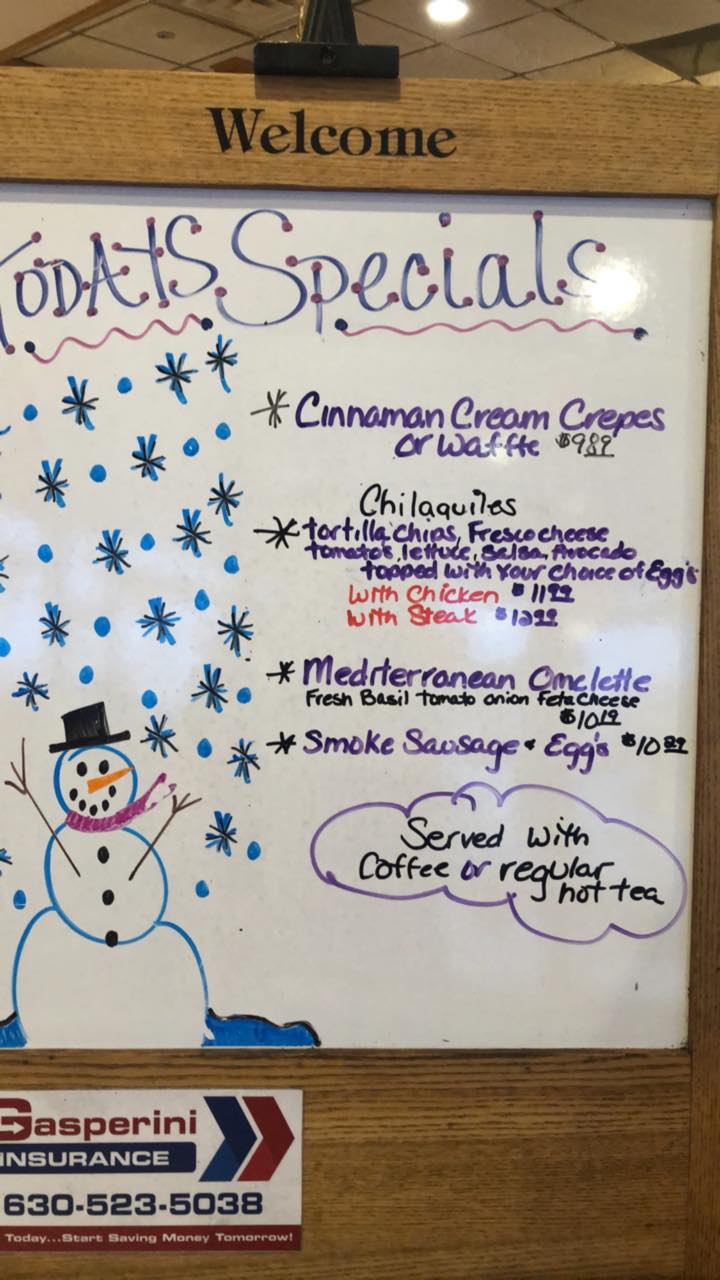 Welcome
TODAYS Specials
* Cinnaman Cream Crepes
or Waffle $9.89
Chilaquiles
* tortilla chips, Fresco cheese
tomatos, lettuce, Salsa, Avocado
topped with Your Choice of Egg's
With Chicken $11.99
With Steak $12.99
* Mediterranean Omelette
Fresh Basil tomato onion feta Cheese
$10.19
* Smoke Sausage & Egg's $10.89
Served With
Coffee or regular
hot tea
Gasperini
INSURANCE
630-523-5038
Today...Start Saving Money Tomorrow!